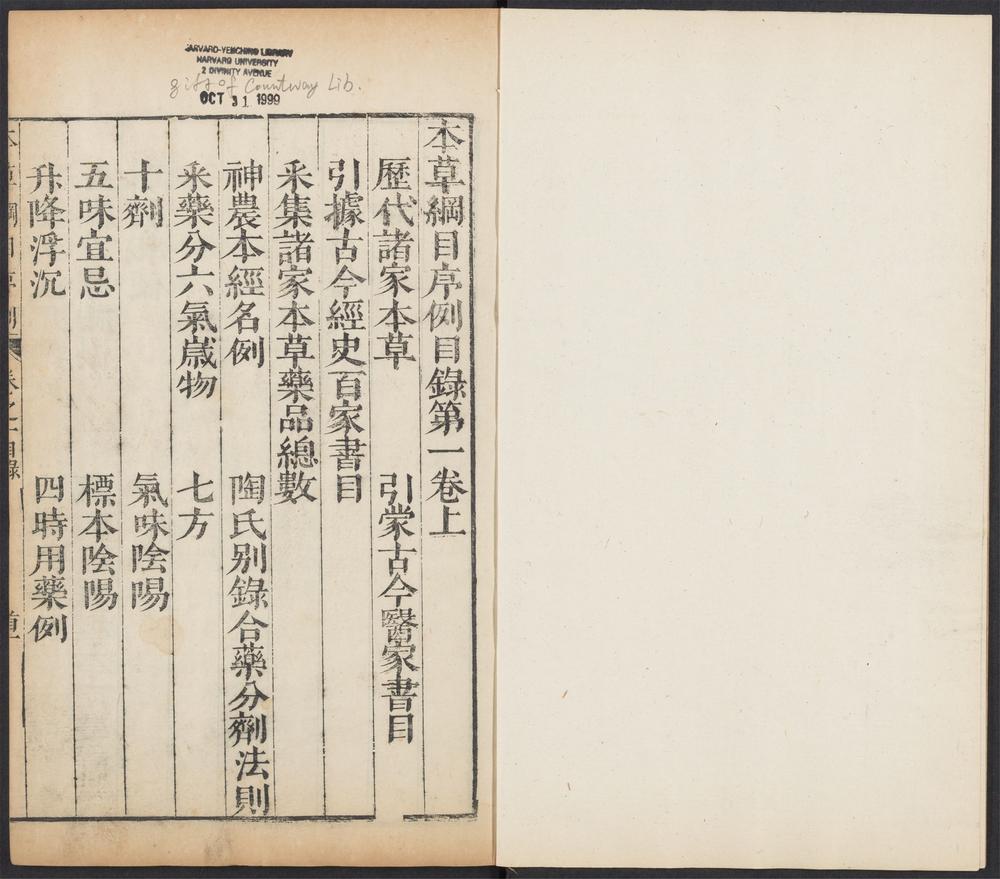 HARVARD-YENCHING LIBRARY
HARVARD UNIVERSITY
2 DIVINITY AVENUE
gift of Countway Lib.
OCT 31 1999
本草綱目序例目錄第一卷上
歷代諸家本草 引蒙古今醫家書目
引據古今經史百家書目
釆集諸家本草藥品總數
神農本經名例 陶氏別錄合藥分劑法則
釆藥分六氣歲物 七方
十劑 氣味陰陽
五味宜忌 標本陰陽
升降浮沉 四時用藥例
本草綱目序例 卷之一目錄